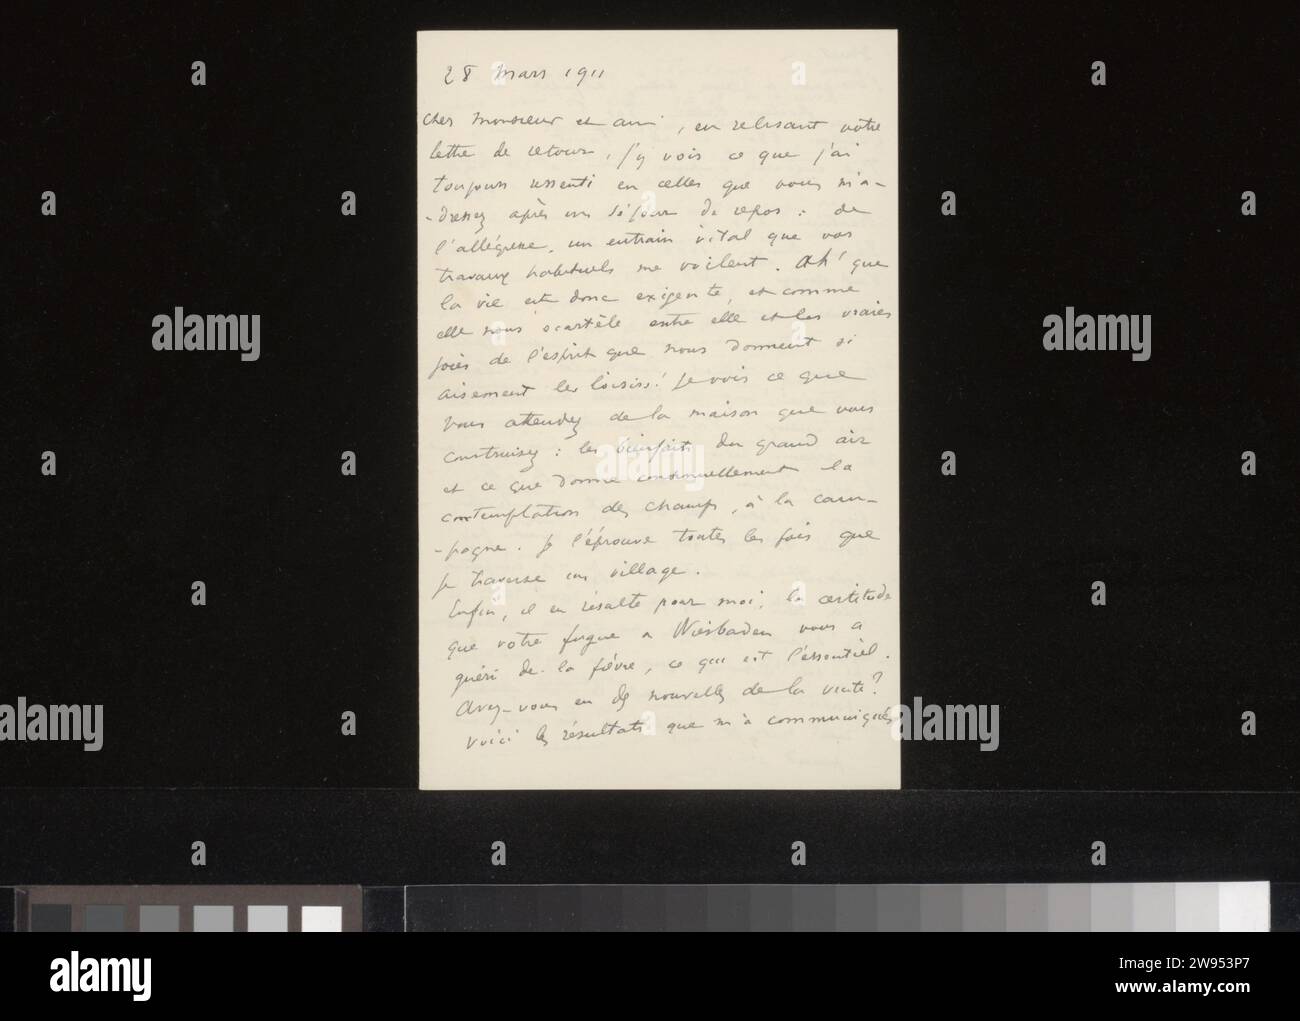 28 mars 1911
Cher Monsieur et ami, en relisant votre
lettre de retour, j'y vois ce que j'ai
toujours ressenti en celles que vous m'a-
-dressez après un séjour de repos : de
l'allégresse, un entrain vital que vos
travaux habituels me voilent. Ah! que
la vie est donc exigente, et comme
elle nous écartèle entre elle et les vraies
joies de l'esprit que nous donnent si
aisément les loisirs! Je vois ce que
vous attendez de la maison que vous
construisez : les bienfaits du grand air
et ce que donne continuellement la
contemplation des champs, à la cam-
-pagne. Je l'éprouve toutes les fois que
je traverse un village.
Enfin, il en résulte pour moi, la certitude
que votre fugue a Wiesbaden vous a
guéri de la fièvre, ce qui est l'essentiel.
Avez-vous eu des nouvelles de la vente?
Voici les résultats que m'a communiqués
alamy
alamy
alamy
alamy
alamy
Image ID: 2W953P7
www.alamy.com